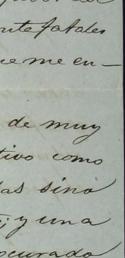 fatales
ue me en-
de muy
tivo como
las sino
; y una
ocurado